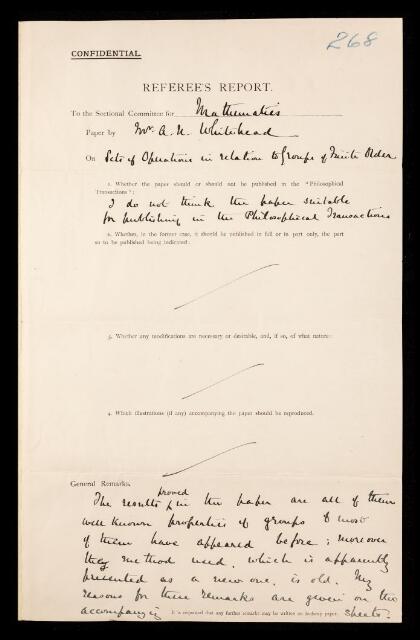 268
CONFIDENTIAL.
REFEREE'S REPORT.
To the Sectional Committee for Mathematics
Paper by Mr. A. N. Whitehead
On Sets of Operations in relation to Groups of Finite Order
1. Whether the paper should or should not be published in the "Philosophical
Transactions":
I do not think the paper suitable
for publishing in the Philosophical Transactions
2. Whether, in the former case, it should be published in full or in part only, the part
so to be published being indicated:
3. Whether any modifications are necessary or desirable, and, if so, of what nature:
4. Which illustrations (if any) accompanying the paper should be reproduced.
General Remarks.
The results proved in the paper are all of them
well known properties of groups & most
of them have appeared before; moreover
the method used, which is apparently
presented as a new one, is old. My
reasons for these remarks are given on the
accompanying sheets.
It is requested that any further remarks may be written on foolscap paper.